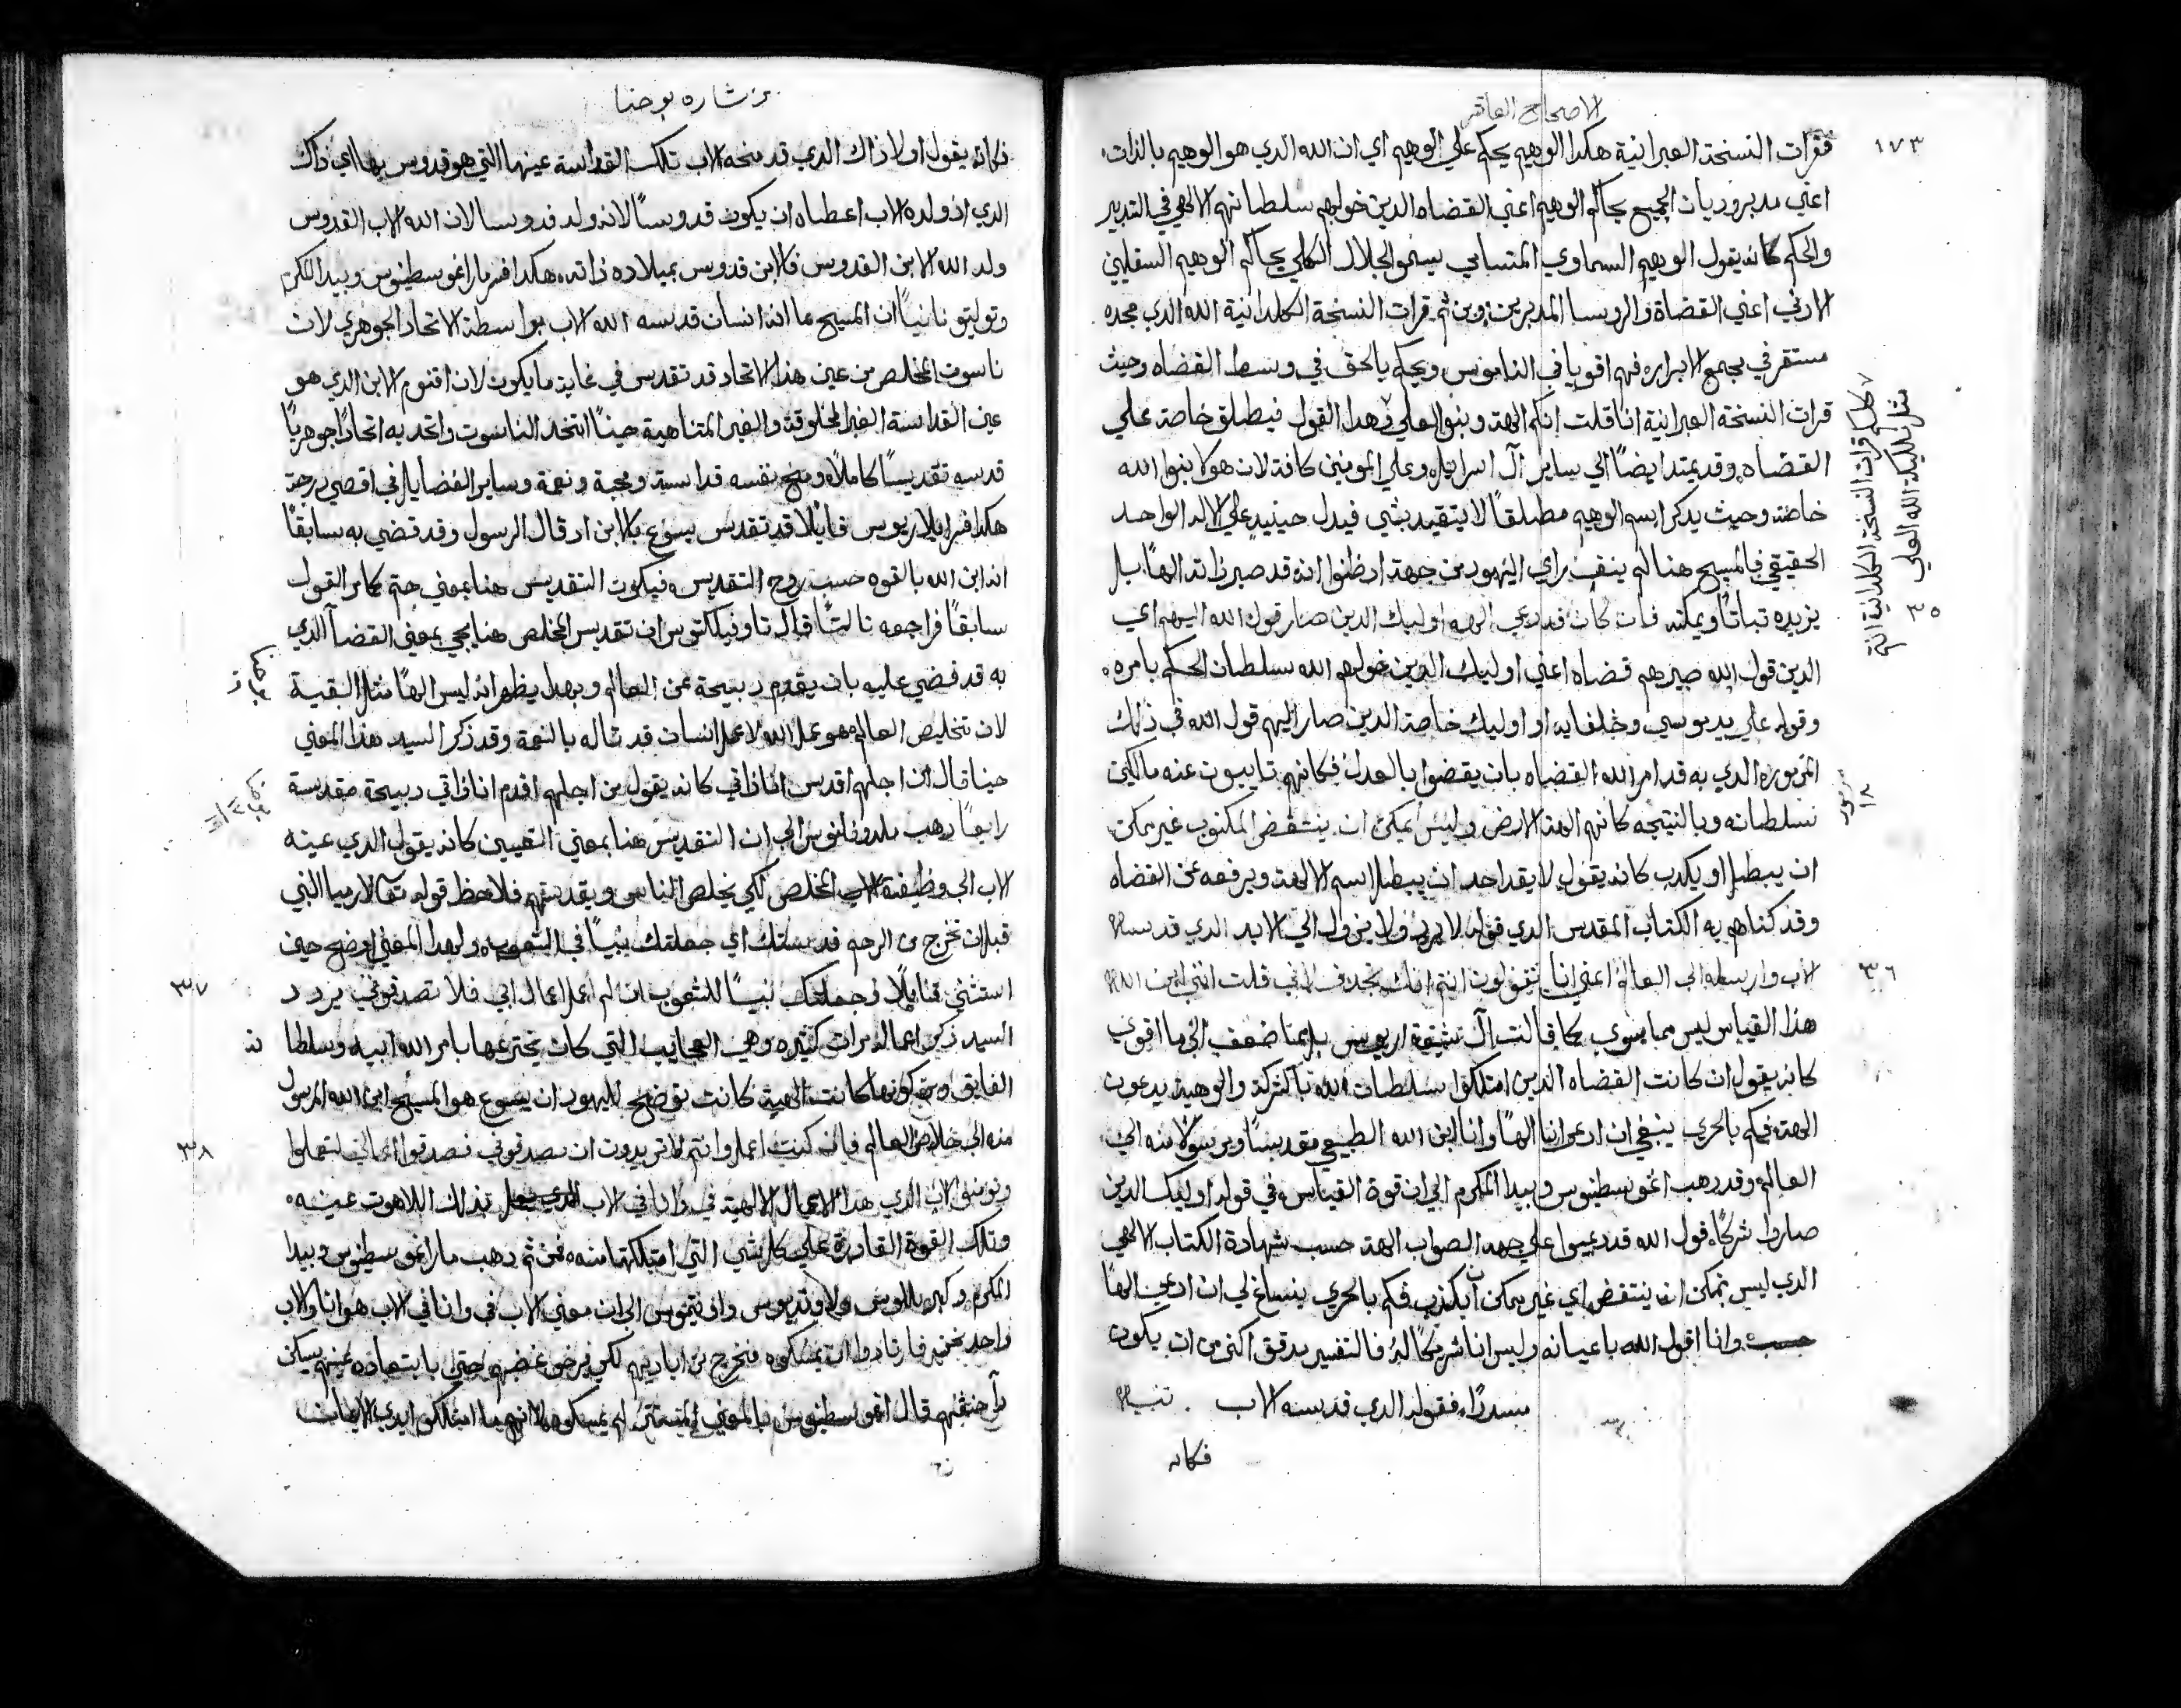 الاصحاح العاشر
١٧٣
فقرات النسخة العبرانية هكدا الوهيم يحكم علي الوهيم اي ان الله الدي هو الوهيم بالدات
اعني مدبر وديان الجميع يحاكم الوهيم اعني القضاه الدين خولهم سلطانهم الالهي في التدبير
والحكم كانه يقول الوهيم السماوي المتسامي بسمو الجلال الكلي يحاكم الوهيم السفليين
الادني اعني القضاة والروسا المدبرين ومن ثم قرات النسخة الكلدانية الله الدي مجده
مستقر في مجمع الابرار فهم اقويا في الناموس ويحكم بالحق في وسط القضاه وحيث
قرات النسخة العبرانية انا قلت انكم الهة وبنو العلي فهدا القول فيطلق خاصة علي
القضاه وقد يمتد ايضًا الي ساير آل اسراييل وعلي المومنين كافة لان هولا بنو الله
خاصة وحيث يدكر اسم الوهيم مطلقًا لا يتقيد بشي فيدل حينيد علي الاله الواحد
الحقيقي فالمسيح هنا لم ينقض راي اليهود من جهة اد ظنوا انه قد صير داته الهًا بل
يزيده تباتًا ويمكنه فان كان قد دعي الهه اوليك الدين صار قول الله اليهم اي
الدين قول الله صيرهم قضاه اعني اوليك الدين خولهم الله سلطان الحكم بامره
وقوله علي يد موسي وخلفايه او اوليك خاصة الدين صار اليهم قول الله في دلك
المزمور الدي به قد امر الله القضاه بان يقضوا بالعدل فكانهم نايبون عنه مالكين
سلطانه وبالنتيجه كانهم الهة الارض وليس يمكن ان ينتقض المكتوب غير يمكن
ان يبطل او يكدب كانه يقول لا يقدر احد ان يبطل اسم الالهة ويرفعه عن القضاه
وقد كناهم به الكتاب المقدس الدي قوله لا يرد ولا يزول الي الابد الدي قدسه
الاب وارسله الي العالم اعني انا تقولون انتم انك تجدف لاني قلت انني ابن الله
هدا القياس ليس مما سوي كما قالت آل شيعة اريوس بل مما ضعف الي ما اقوي
كانه يقول ان كانت القضاه الدين امتلكوا سلطان الله بالشركة والوهبة يدعون
الهة فكم بالحري ينبغي ان ادعي انا الهًا وانا ابن الله الطبيعي مقدسًا ومرسولا منه الي
العالم وقد دهب اغوسطينوس وبيدا المكرم الي ان قوة القياس في قوله اوليك الدين
صاروا شركا قول الله قد دعيوا علي جهة الصواب الهة حسب شهادة الكتاب الالهي
الدي ليس يمكن ان ينتقض اي غير يمكن ان يكدب فكم بالحري ينساغ لي ان ادعي الهًا
وانا اقول الله باعيانه وليس انا شريكًا له فالتفسير يدقق اكثر من ان يكون
مسددًا فقوله الدي قدسه الاب
فكانه
كلكم قرات النسخة الكلدانية انتم
مثل ملايكة الله العلي
٣٥
مزمور
١٨
٣٦
بشاره يوحنا
فكانه يقول اولا داك الدي قد منحه الاب تلك القداسة عينها التي هو قدوس بها اي داك
الدي اد ولده الاب اعطاه ان يكون قدوسًا لانه ولد قدوسا لان الله الاب القدوس
ولد الله الابن القدوس فالابن قدوس بميلاده داته هكدا فسر مار اغوسطينوس وبيدا المكرم
وتوليتو تانيًا ان المسيح بما انه انسان قدسه الله الاب بواسطة الاتحاد الجوهري لان
ناسوت المخلص من عين هدا الاتحاد قد تقدس في غاية ما يكون لان اقنوم الابن الدي هو
عين القداسة الغير المخلوقة والغير المتناهية حينًا اتخد الناسوت واتحد به اتحادًا جوهريًا
قدسه تقديسًا كاملًا ومنح نفسه قداسة ومحبة ونعمة وساير الفضايل في اقصي درجة
هكدا فسر ايلاريوس قايلًا قد تقدس يسوع بالابن اد قال الرسول وقد قضي به سابقًا
انه ابن الله بالقوه حسب روح التقديس فيكون التقديس هنا بمعني حتم كما مر القول
سابقًا فراجعه تالتًا قال تاوفيلكتوس ان تقديس المخلص هنا يجي بمعني القضا الدي
به قد قضي عليه بان يقدم دبيحة عن العالم وبهدا يظهر انه ليس الهًا مثل البقية
لان تخليص العالم هو عمل الله لا عمل انسان قد تاله بالنعمة وقد دكر السيد هدا المعني
حينا قال من اجلهم اقدس انا داتي كانه يقول من اجلهم اقدم انا داتي دبيحة مقدسة
رابعًا دهب ملدوناتوس الي ان التقديس هنا بمعني التعيين كانه يقول الدي عينه
الاب الي وظيفة المخلص لكي يخلص الناس ويقدسهم فلاحظ قوله تعا لارميا النبي
قبل ان تخرج من الرحم قدستك اي جعلتك نبيًا في الشعوب ولهدا المعني اوضح حين
استثني قايلًا وجعلتك نبيًا للشعوب ان لم اعمل اعمال ابي فلا تصدقوني يردد
السيد دكر اعماله مرات كثيره وهي العجايب التي كان يخترعها بامر الله ابيه وسلطانه
الفايق ومن كونها كانت الهية كانت توضح لليهود ان يسوع هو المسيح ابن الله المرسول
منه الي خلاص العالم فان كنت اعمل وانتم لا تريدون ان تصدقوني فصدقوا اعمالي لتعلموا
وتومنوا ان الاب الدي هدا الاعمال الالهية في وانا في الاب بدلك اللاهوت عينه
وتلك القوة القادرة علي كل شي التي امتلكتها منه فمن ثم دهب مار اغوسطينوس وبيدا
المكرم وكيرللوس ولاونديوس وافتيموس الي ان معني الاب في وانا في الاب هو انا والاب
واحد نحن فارتادوا ان يمسكوه فخرج من اياديهم لكي يرخي غضبهم حتي بابتعاده عنهم يسكن
حنقهم قال اغوسطينوس لم يمسكوه لانهم ما امتلكوا ايدي الايمان
٣٧
٣٨